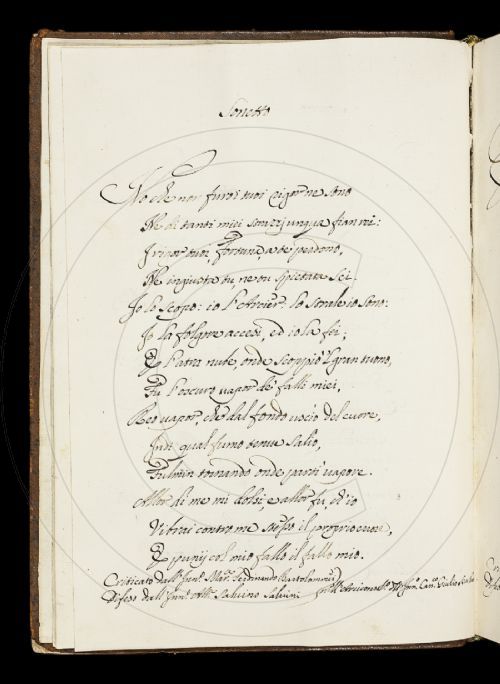 Sonetto
No che non furo i tuoi rigor ne sono
Ne di tanti miei strazj unqua fian rei:
I rigor tuoi, fortuna, a te perdono,
Ne ingiusta tu, ne tu spietata sei.
Io lo scopo: io l'Arcier: lo strale io sono:
Io la folgore accesi, ed io la fei;
E l'atra nube, onde scoppiò 'l gran tuono,
Fu l'oscuro vapor de' falli miei,
Reo vapor, che dal fondo uscìo del cuore,
Indi qual fumo tenue salìo,
Fulmin tornando onde partì vapore.
Allor di me mi dolsi, e allor fu, ch'io
Vibrai contro me stesso il proprio cuore,
E punij col mio fallo il fallo mio.
Criticato dall' Ferdinando Bartolommei
Difeso dall' Salvino Salvini